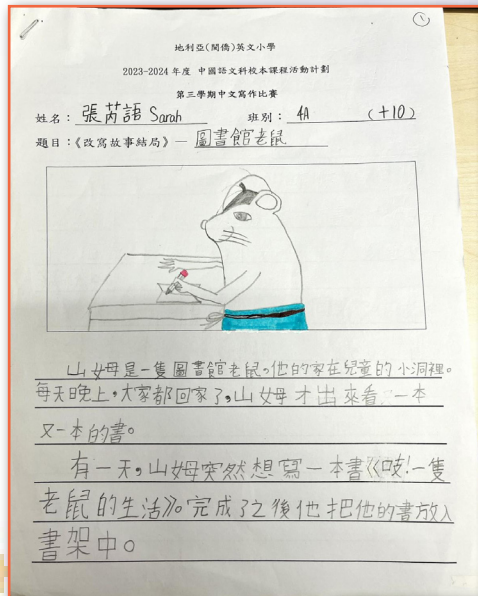 ①
地利亞(閩僑)英文小學
2023-2024 年度 中國語文科校本課程活動計劃
第三學期中文寫作比賽
姓名：張芮語 Sarah 班別：4A (+10)
題目：《改寫故事結局》— 圖書館老鼠
山姆是一隻圖書館老鼠。他的家在兒童的小洞裡。
每天晚上，大家都回家了，山姆才出來看一本
又一本的書。
有一天，山姆突然想寫一本書《吱！一隻
老鼠的生活》。完成了之後他把他的書放入
書架中。